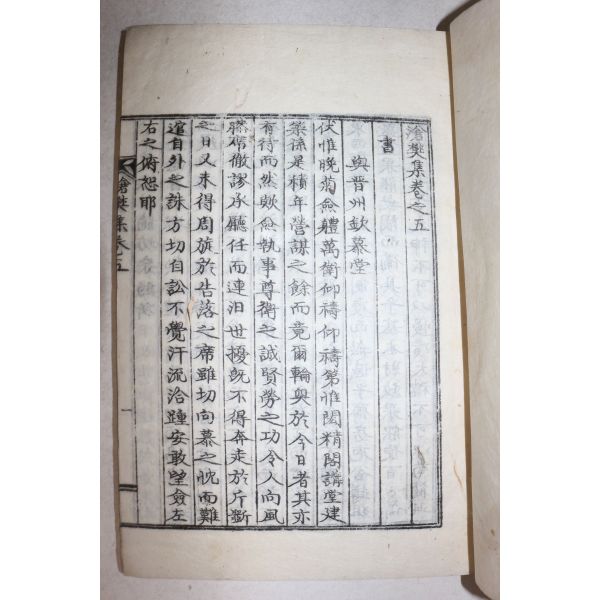 滄樊集卷之五
書
與晋州欽慕堂
伏惟晚菊僉體萬衛仰禱仰禱第惟閎精閣講堂建
築係是積年營謀之餘而竟爾輪奐於今日者其亦
有待而然歟僉執事尊衛之誠賢勞之功令人向風
勝席徹謬承廳任而連汨世擾旣不得奔走於斤斲
之日又未得周旋於告落之席雖切向慕之忱而難
逭自外之誅方切自訟不覺汗流洽踵安敢望僉左
右之俯恕耶
滄樊集卷五
一